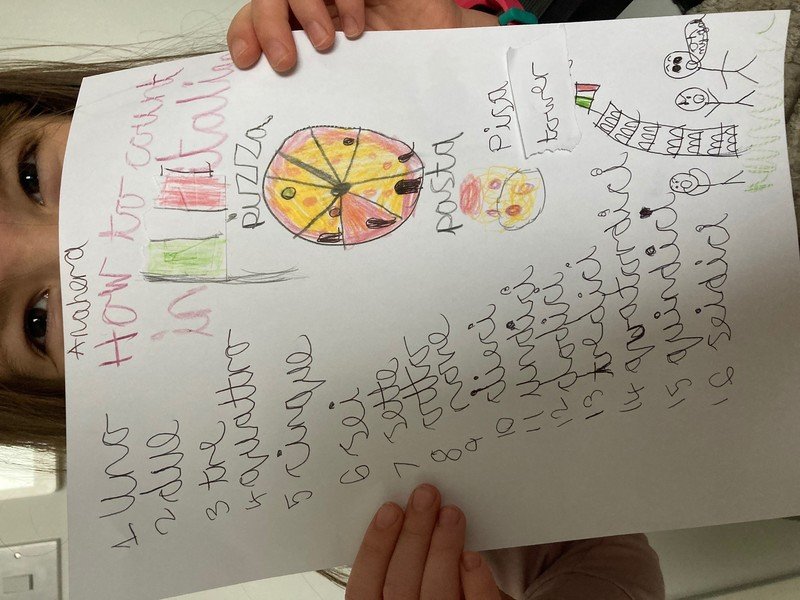 Anahera
How too count
in Italian
1 Uno
2 due
3 tre
4 quattro
5 cinque
6 sei
7 sette
8 otto
9 nove
10 dieci
11 undici
12 dodici
13 tredici
14 quatordici
15 quindici
16 seidici
pizza
pasta
Pisa
tower